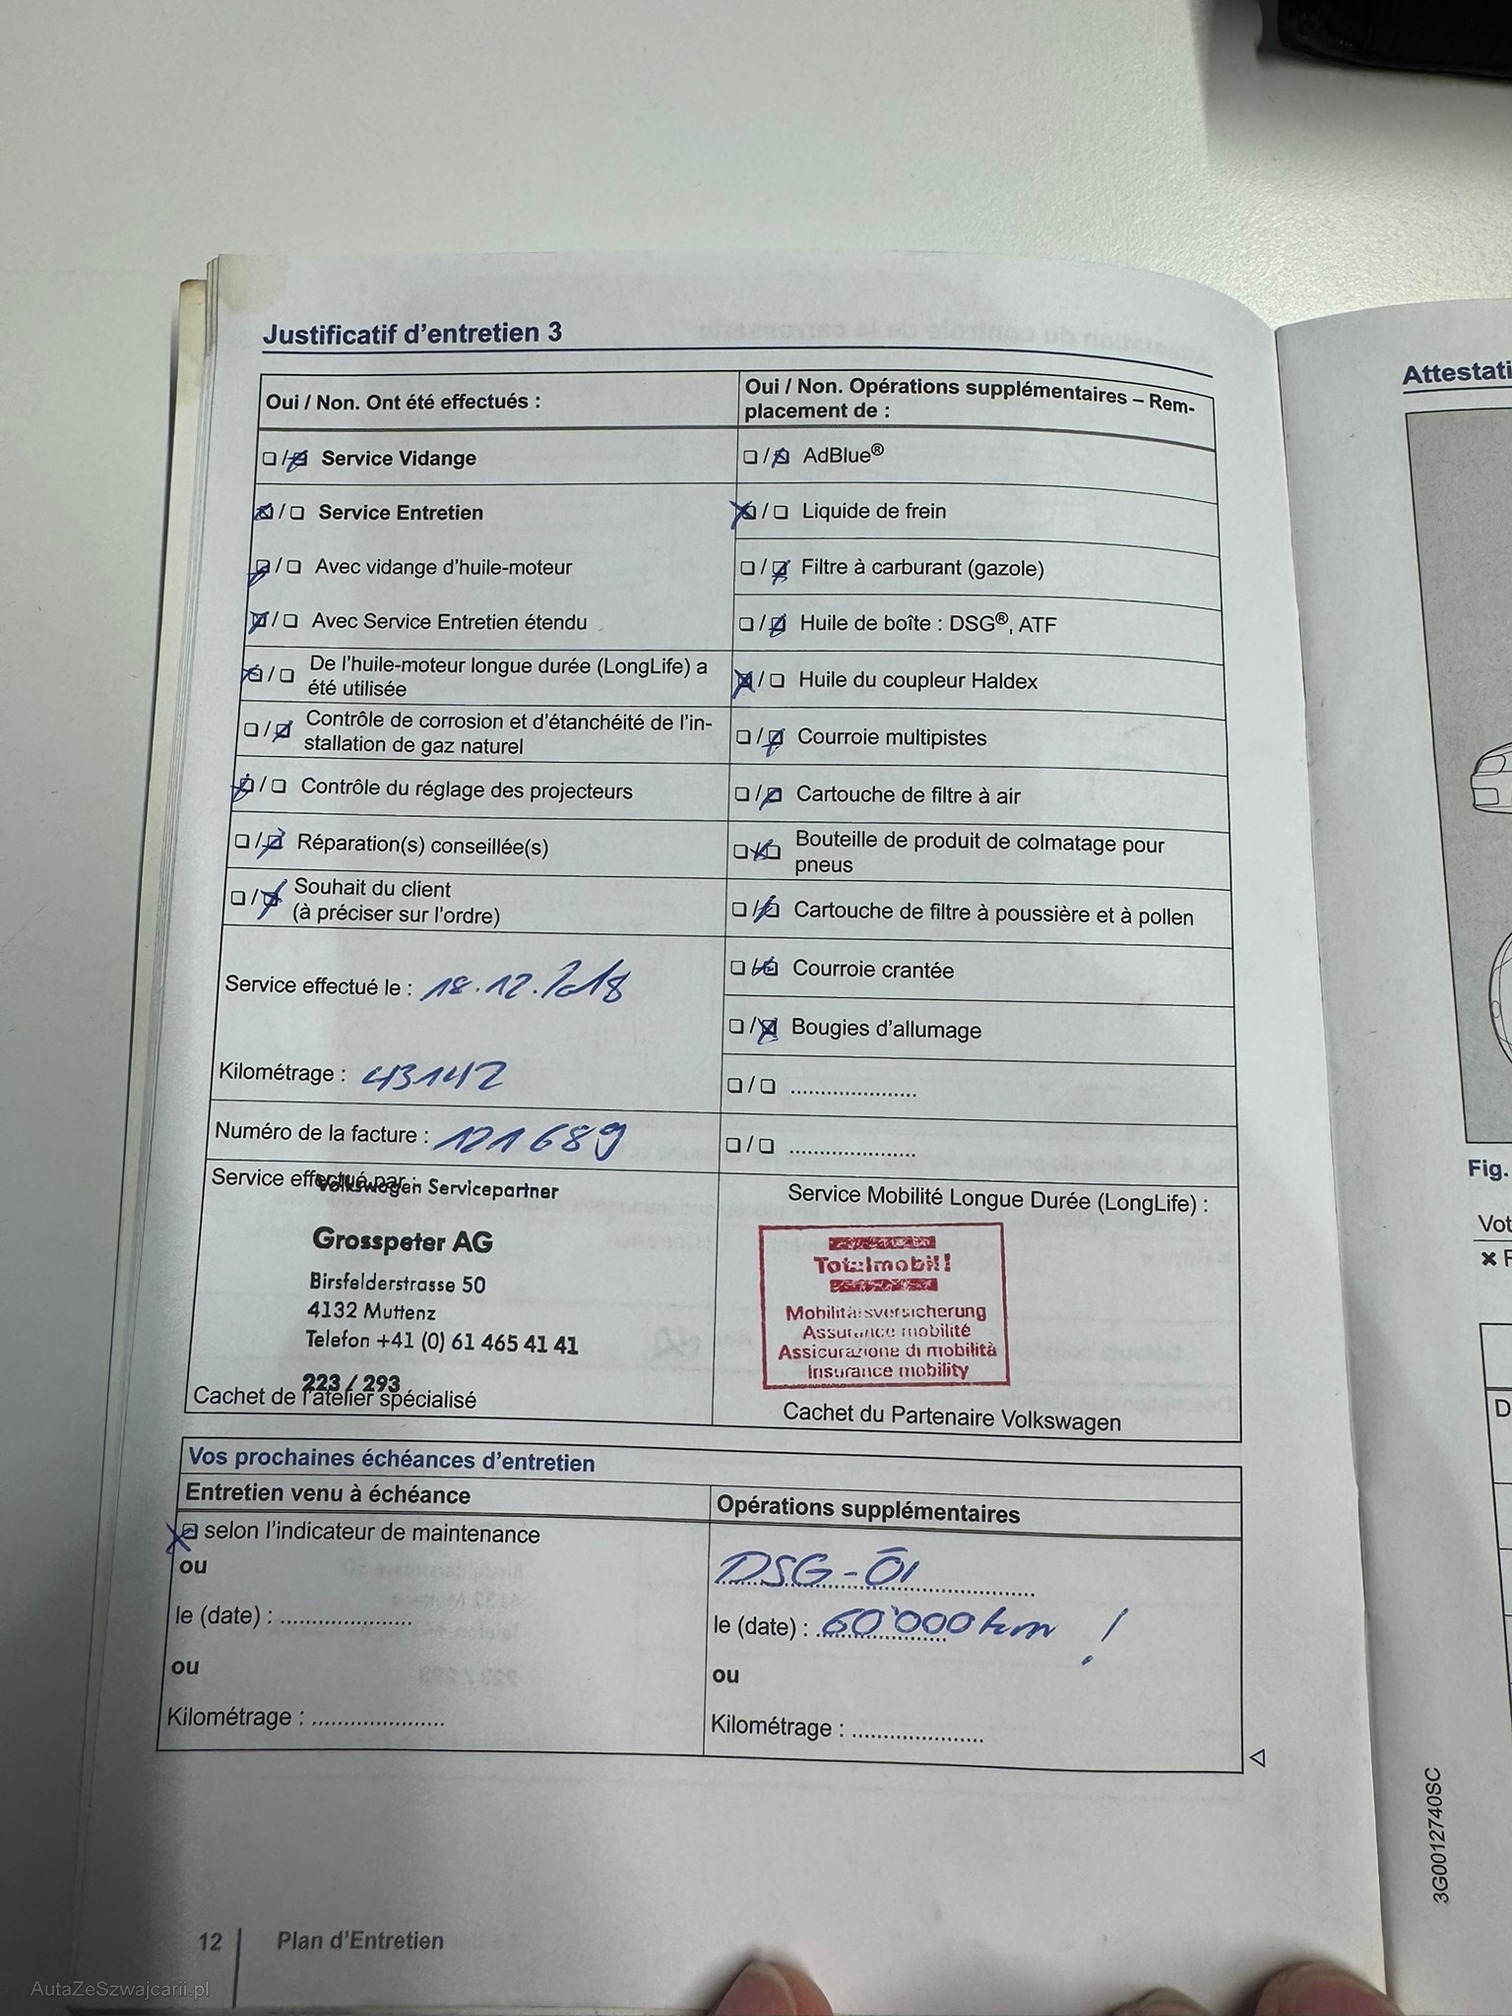 Justificatif d'entretien 3
Oui / Non. Ont été effectués :
❏ / ❏ Service Vidange
❏ / ❏ Service Entretien
❏ / ❏ Avec vidange d'huile-moteur
❏ / ❏ Avec Service Entretien étendu
❏ / ❏ De l'huile-moteur longue durée (LongLife) a
été utilisée
❏ / ❏ Contrôle de corrosion et d'étanchéité de l'in-
stallation de gaz naturel
❏ / ❏ Contrôle du réglage des projecteurs
❏ / ❏ Réparation(s) conseillée(s)
❏ / ❏ Souhait du client
(à préciser sur l'ordre)
Service effectué le : 18.12.2018
Kilométrage : 43142
Numéro de la facture : 121689
Service effectué par :
Volkswagen Servicepartner
Grosspeter AG
Birsfelderstrasse 50
4132 Muttenz
Telefon +41 (0) 61 465 41 41
223 / 293
Cachet de l'atelier spécialisé
Oui / Non. Opérations supplémentaires – Rem-
placement de :
❏ / ❏ AdBlue®
❏ / ❏ Liquide de frein
❏ / ❏ Filtre à carburant (gazole)
❏ / ❏ Huile de boîte : DSG®, ATF
❏ / ❏ Huile du coupleur Haldex
❏ / ❏ Courroie multipistes
❏ / ❏ Cartouche de filtre à air
❏ / ❏ Bouteille de produit de colmatage pour
pneus
❏ / ❏ Cartouche de filtre à poussière et à pollen
❏ / ❏ Courroie crantée
❏ / ❏ Bougies d'allumage
❏ / ❏ .....................
❏ / ❏ .....................
Service Mobilité Longue Durée (LongLife) :
Totalmobil!
Mobilitätsversicherung
Assurance mobilité
Assicurazione di mobilità
Insurance mobility
Cachet du Partenaire Volkswagen
Vos prochaines échéances d'entretien
Entretien venu à échéance
❏ selon l'indicateur de maintenance
ou
le (date) : .....................
ou
Kilométrage : .....................
Opérations supplémentaires
DSG-Öl
le (date) : 60'000 km !
ou
Kilométrage : .....................
12 Plan d'Entretien
Attestati
Fig.
Vot
× F
D
3G0012740SC
AutaZeSzwajcarii.pl